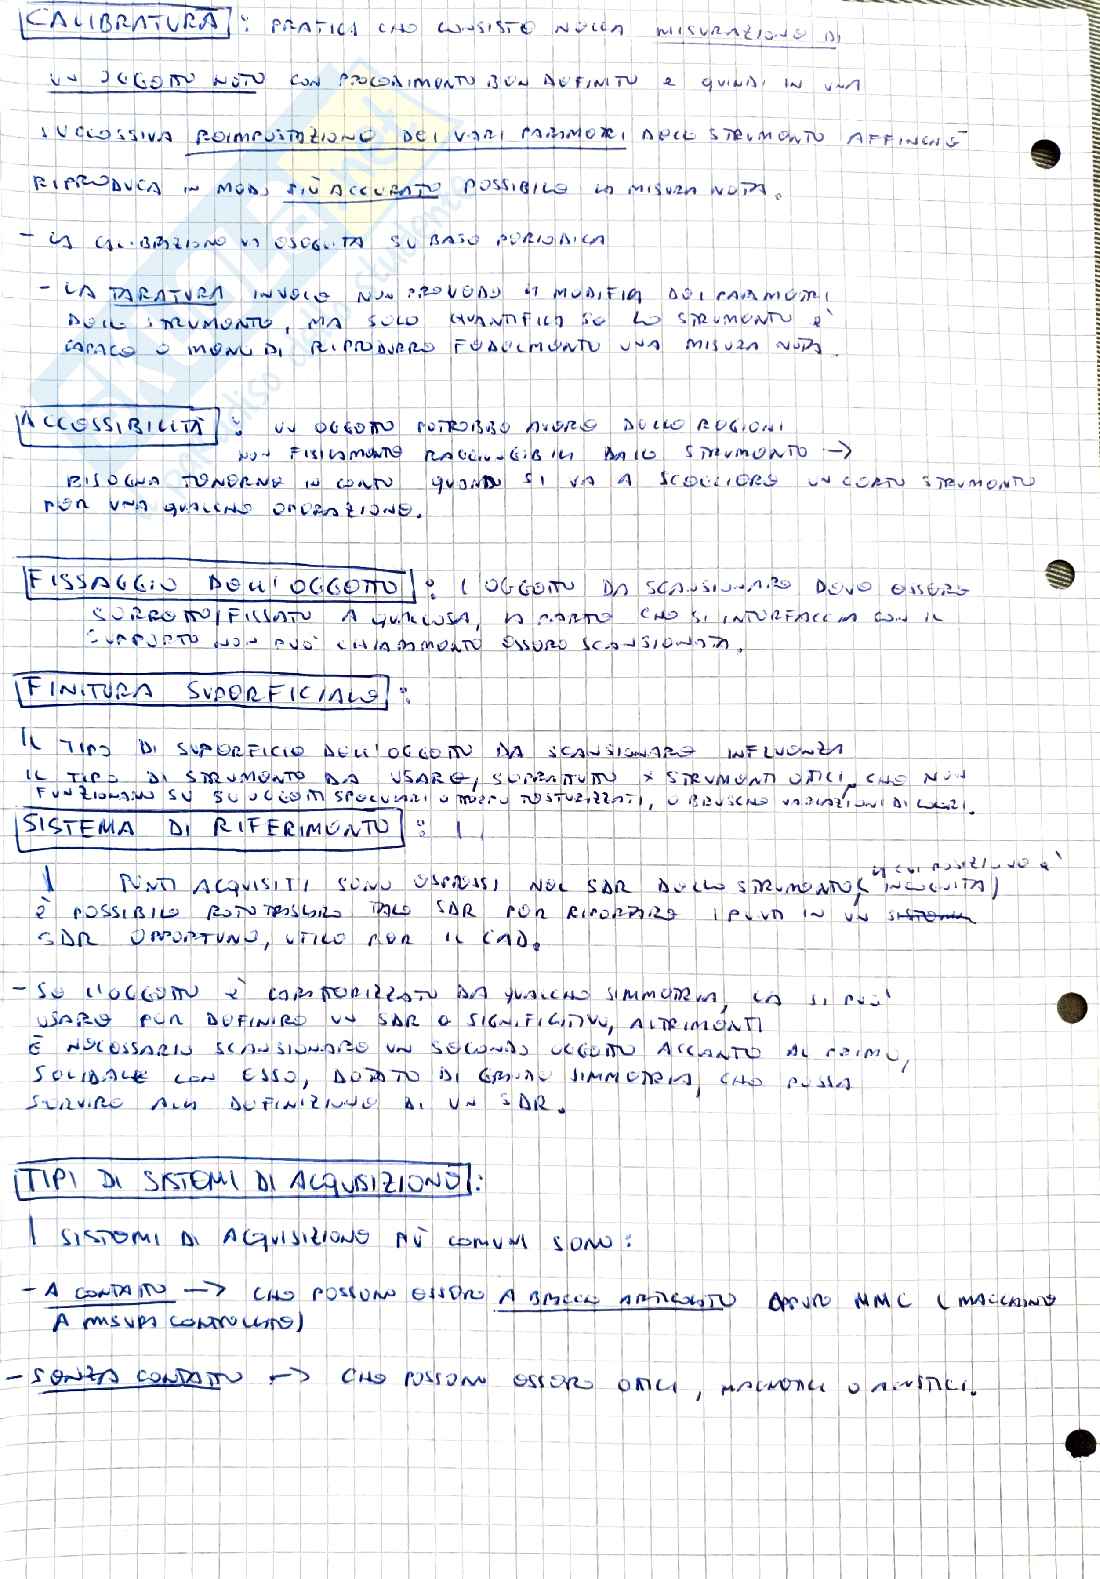 CALIBRATURA : PRATICA CHE CONSISTE NELLA MISURAZIONE DI
UN OGGETTO NOTO CON PROCEDIMENTO BEN DEFINITO E QUINDI IN UNA
SUCCESSIVA REIMPOSTAZIONE DEI VARI PARAMETRI DELLO STRUMENTO AFFINCHÈ
RIPRODUCA IN MODO PIÙ ACCURATO POSSIBILE LA MISURA NOTA.
- LA CALIBRAZIONE VA ESEGUITA SU BASE PERIODICA
- LA TARATURA INVECE NON PREVEDE LA MODIFICA DEI PARAMETRI
DELLO STRUMENTO, MA SOLO QUANTIFICA SE LO STRUMENTO È
CAPACE O MENO DI RIPRODURRE FEDELMENTE UNA MISURA NOTA.
ACCESSIBILITÀ : UN OGGETTO POTREBBE AVERE DELLE REGIONI
NON FISICAMENTE RAGGIUNGIBILI DALLO STRUMENTO →
BISOGNA TENERNE IN CONTO QUANDO SI VA A SCEGLIERE UN CERTO STRUMENTO
PER UNA QUALCHE OPERAZIONE.
FISSAGGIO DELL'OGGETTO : L'OGGETTO DA SCANSIONARE DEVE ESSERE
SORRETTO/FISSATO A QUALCOSA, LA PARTE CHE SI INTERFACCIA CON IL
SUPPORTO NON PUÒ CHIARAMENTE ESSERE SCANSIONATA.
FINITURA SUPERFICIALE :
IL TIPO DI SUPERFICIE DELL'OGGETTO DA SCANSIONARE INFLUENZA
IL TIPO DI STRUMENTO DA USARE, SOPRATUTTO × STRUMENTI OTTICI, CHE NON
FUNZIONANO SU OGGETTI SPECULARI O TROPPO TESTURIZZATI, O BRUSCHE VARIAZIONI DI COLORI.
SISTEMA DI RIFERIMENTO :
I PUNTI ACQUISITI SONO ESPRESSI NEL SDR DELLO STRUMENTO (LA CUI POSIZIONE È INCOGNITA)
È POSSIBILE ROTOTRASLARE TALE SDR PER RIPORTARE I PUNTI IN UN SISTEMA
SDR OPPORTUNO, UTILE PER IL CAD.
- SE L'OGGETTO È CARATTERIZZATO DA QUALCHE SIMMETRIA, LA SI PUÒ
USARE PER DEFINIRE UN SDR SIGNIFICATIVO, ALTRIMENTI
È NECESSARIO SCANSIONARE UN SECONDO OGGETTO ACCANTO AL PRIMO,
SOLIDALE CON ESSO, DOTATO DI SIMMETRIA, CHE POSSA
SERVIRE ALLA DEFINIZIONE DI UN SDR.
TIPI DI SISTEMI DI ACQUISIZIONE :
I SISTEMI DI ACQUISIZIONE PIÙ COMUNI SONO :
- A CONTATTO → CHE POSSONO ESSERE A BRACCIO ARTICOLATO OPPURE MMC (MACCHINE
A MISURA CONTROLLATE)
- SENZA CONTATTO → CHE POSSONO ESSERE OTTICI, MAGNETICI O ACUSTICI.